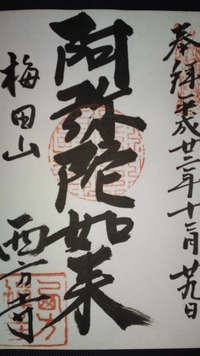 奉拝 平成廿二年十二月廿九日
阿弥陀如来
梅田山 西方寺